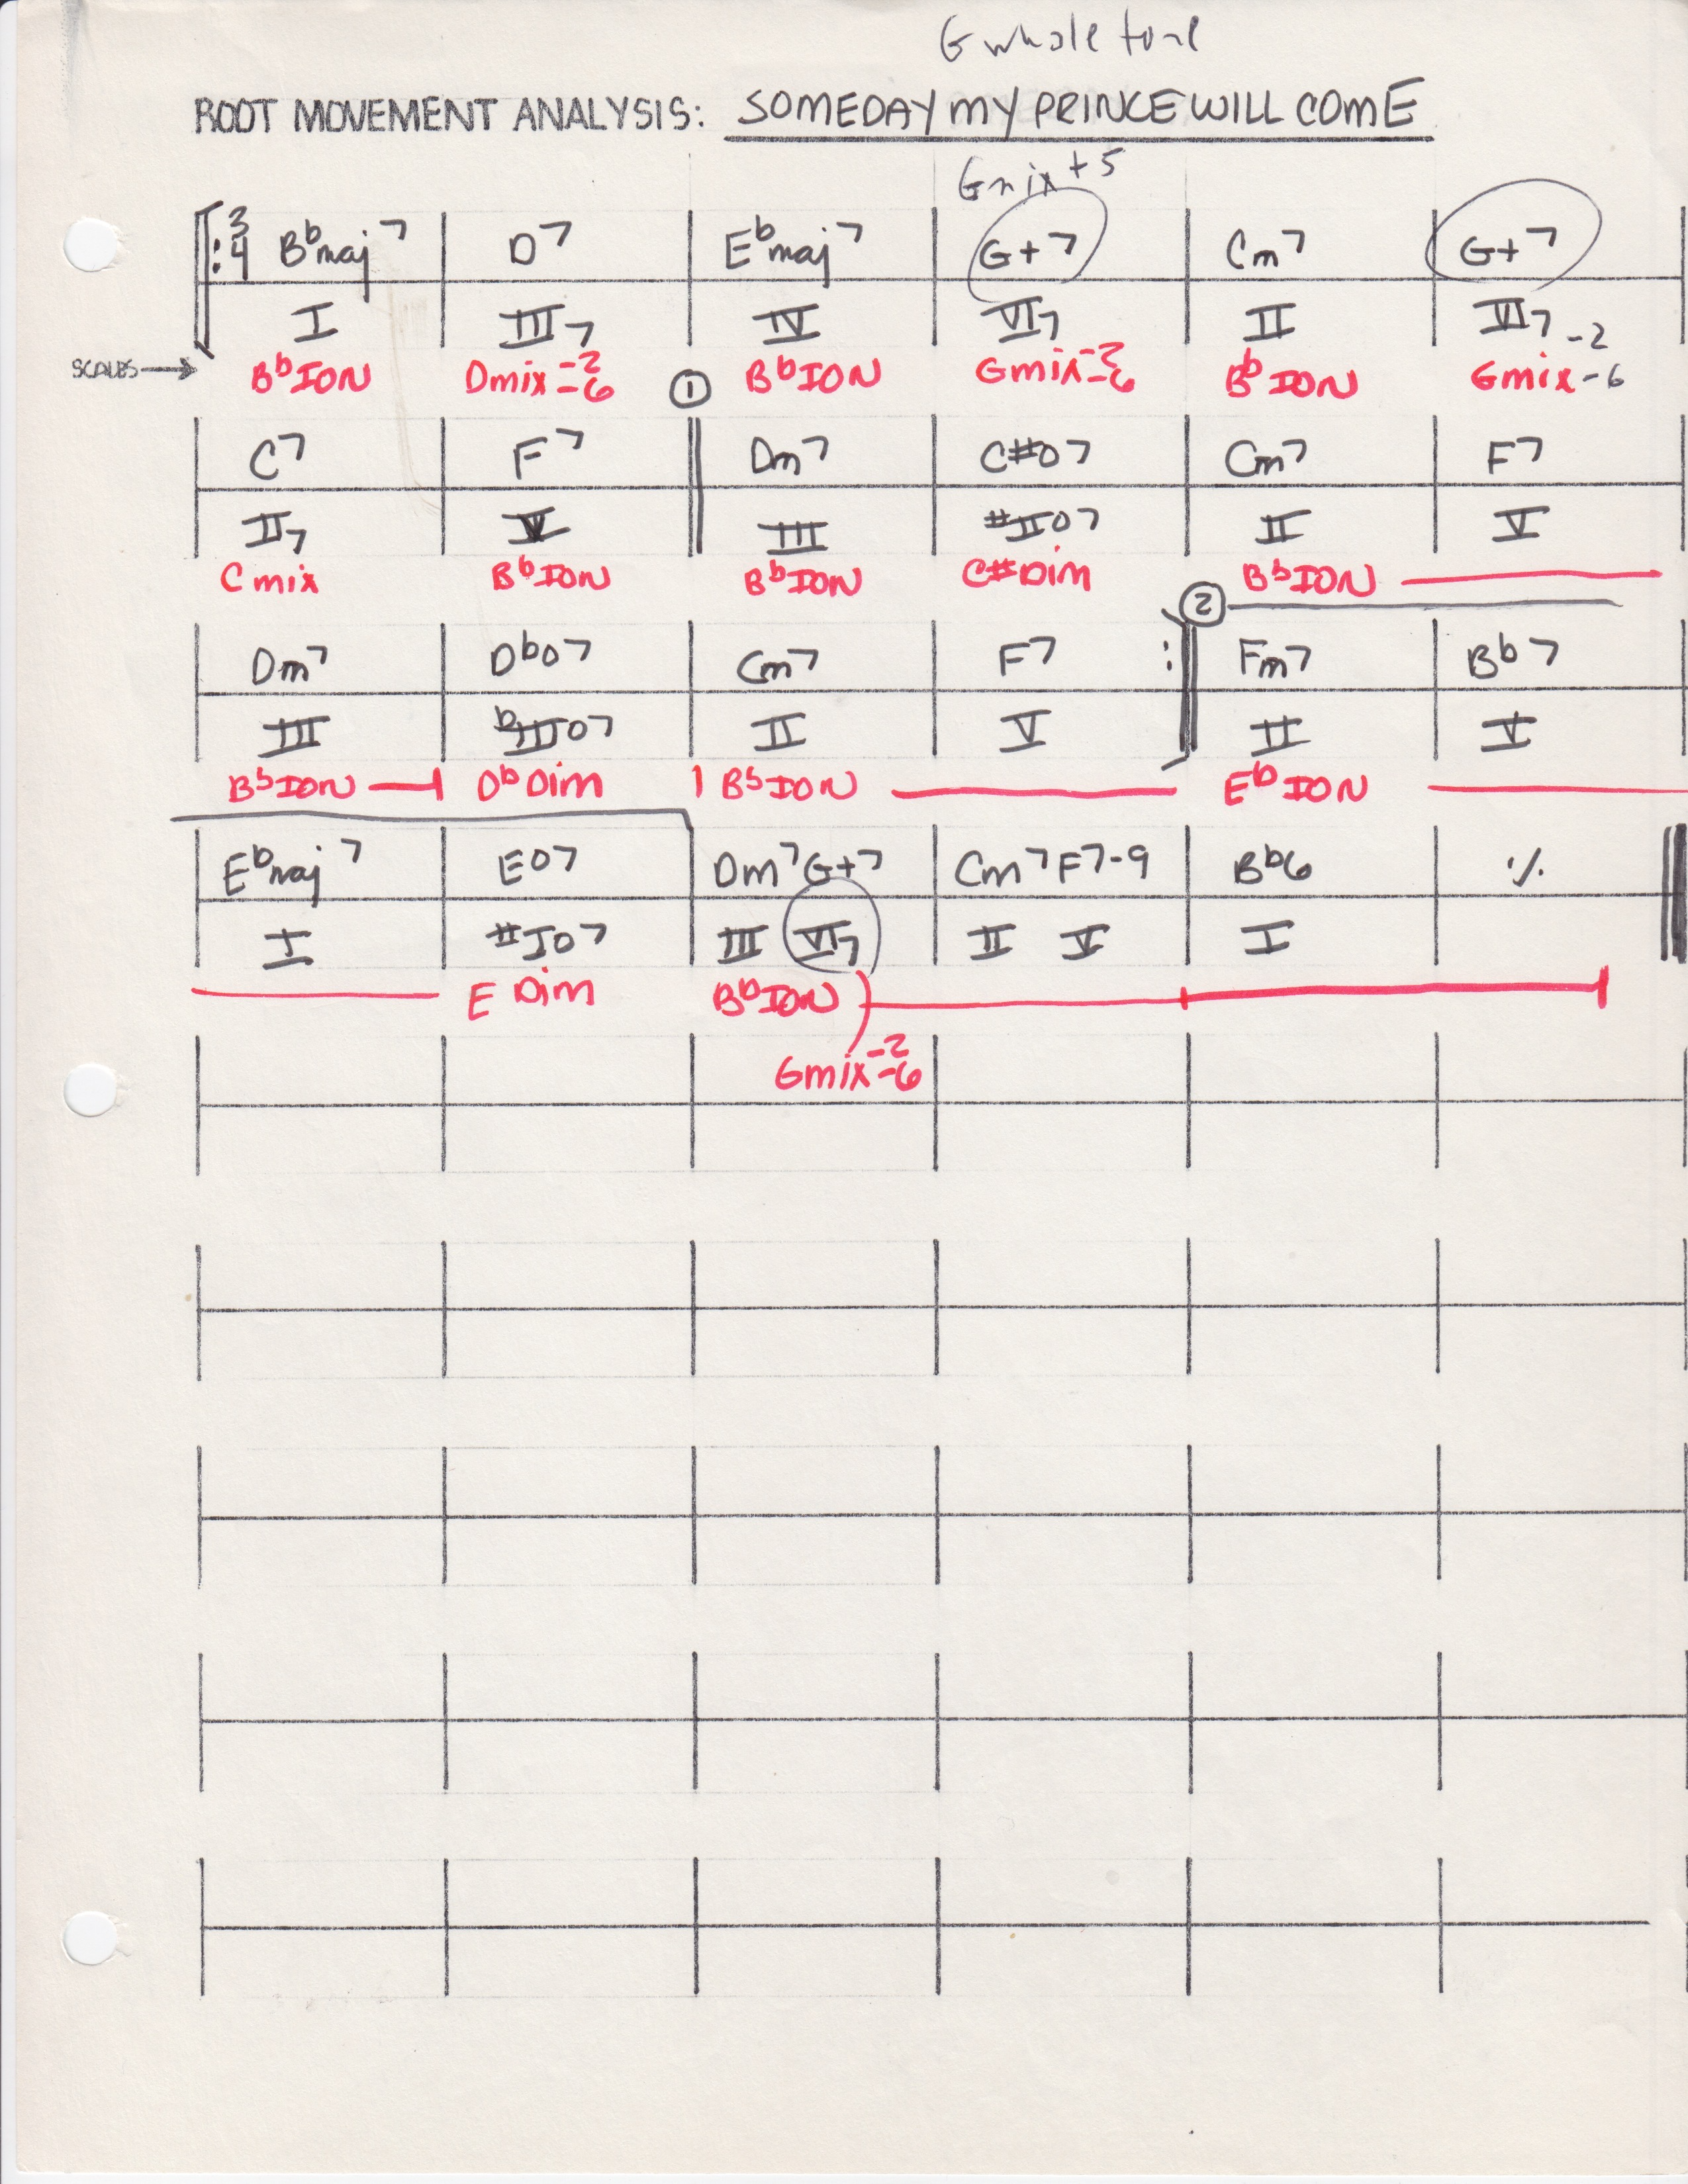 G whole tone
ROOT MOVEMENT ANALYSIS: SOMEDAY MY PRINCE WILL COME
Gmix+5
3/4 B♭maj7 D7 E♭maj7 G+7 Cm7 G+7
I III7 IV VI7 II VI7
SCALES→ B♭ION Dmix-2-6 B♭ION Gmix-2-6 B♭ION Gmix-2-6
①
C7 F7 Dm7 C#o7 Cm7 F7
II7 V III #IIo7 II V
Cmix B♭ION B♭ION C#Dim B♭ION
②
Dm7 D♭o7 Cm7 F7 Fm7 B♭7
III ♭IIIo7 II V II V
B♭ION D♭Dim B♭ION E♭ION
E♭maj7 Eo7 Dm7 G+7 Cm7 F7-9 B♭6 ٪
I #Io7 III VI7 II V I
E Dim B♭ION
Gmix-2-6